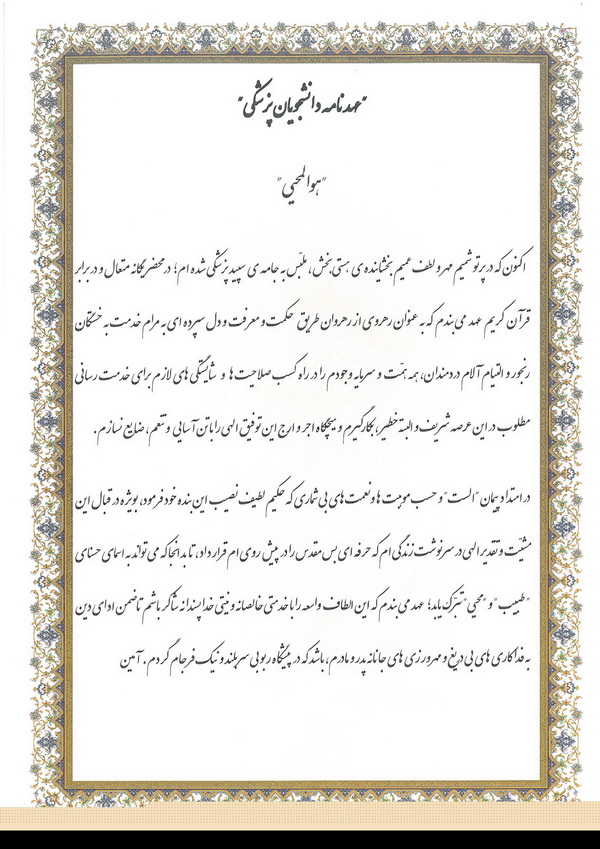 "عهدنامه دانشجویان پزشکی"
"هوالمحیی"
اکنون که در پرتو شمیم مهر و لطف عمیم بخشاینده ی هستی بخش، ملبّس به جامه ی سپید پزشکی شده ام؛ در محضر یگانه متعال و در برابر
قرآن کریم عهد می بندم که به عنوان رهروی از رهروان طریق حکمت و معرفت و دل سپرده ای به مرام خدمت به خستگان
رنجور و التیام آلام دردمندان، همه همّت و سرمایه وجودم را در راه کسب صلاحیت ها و شایستگی های لازم برای خدمت رسانی
مطلوب در این عرصه شریف و البته خطیر، بکارگیرم و هیچگاه اجر و ارج این توفیق الهی را با تن آسایی و تنعم، ضایع نسازم.
در امتداد پیمان "الست" و حسب موهبت ها و نعمت های بی شماری که حکیم لطیف نصیب این بنده خود فرمود، بویژه در قبال این
مشیّت و تقدیر الهی در سرنوشت زندگی ام که حرفه ای بس مقدس را در پیش روی ام قرار داد، تا بدانجا که می تواند به اسمای حسنای
"طبیب" و "محیی" تبرّک یابد؛ عهد می بندم که این الطاف واسعه را با خدمتی خالصانه و نیتی خداپسندانه شاکر باشم تا ضمن ادای دین
به فداکاری های بی دریغ و مهرورزی های جانانه پدر و مادرم، باشد که در پیشگاه ربوبی سربلند و نیک فرجام گردم. آمین